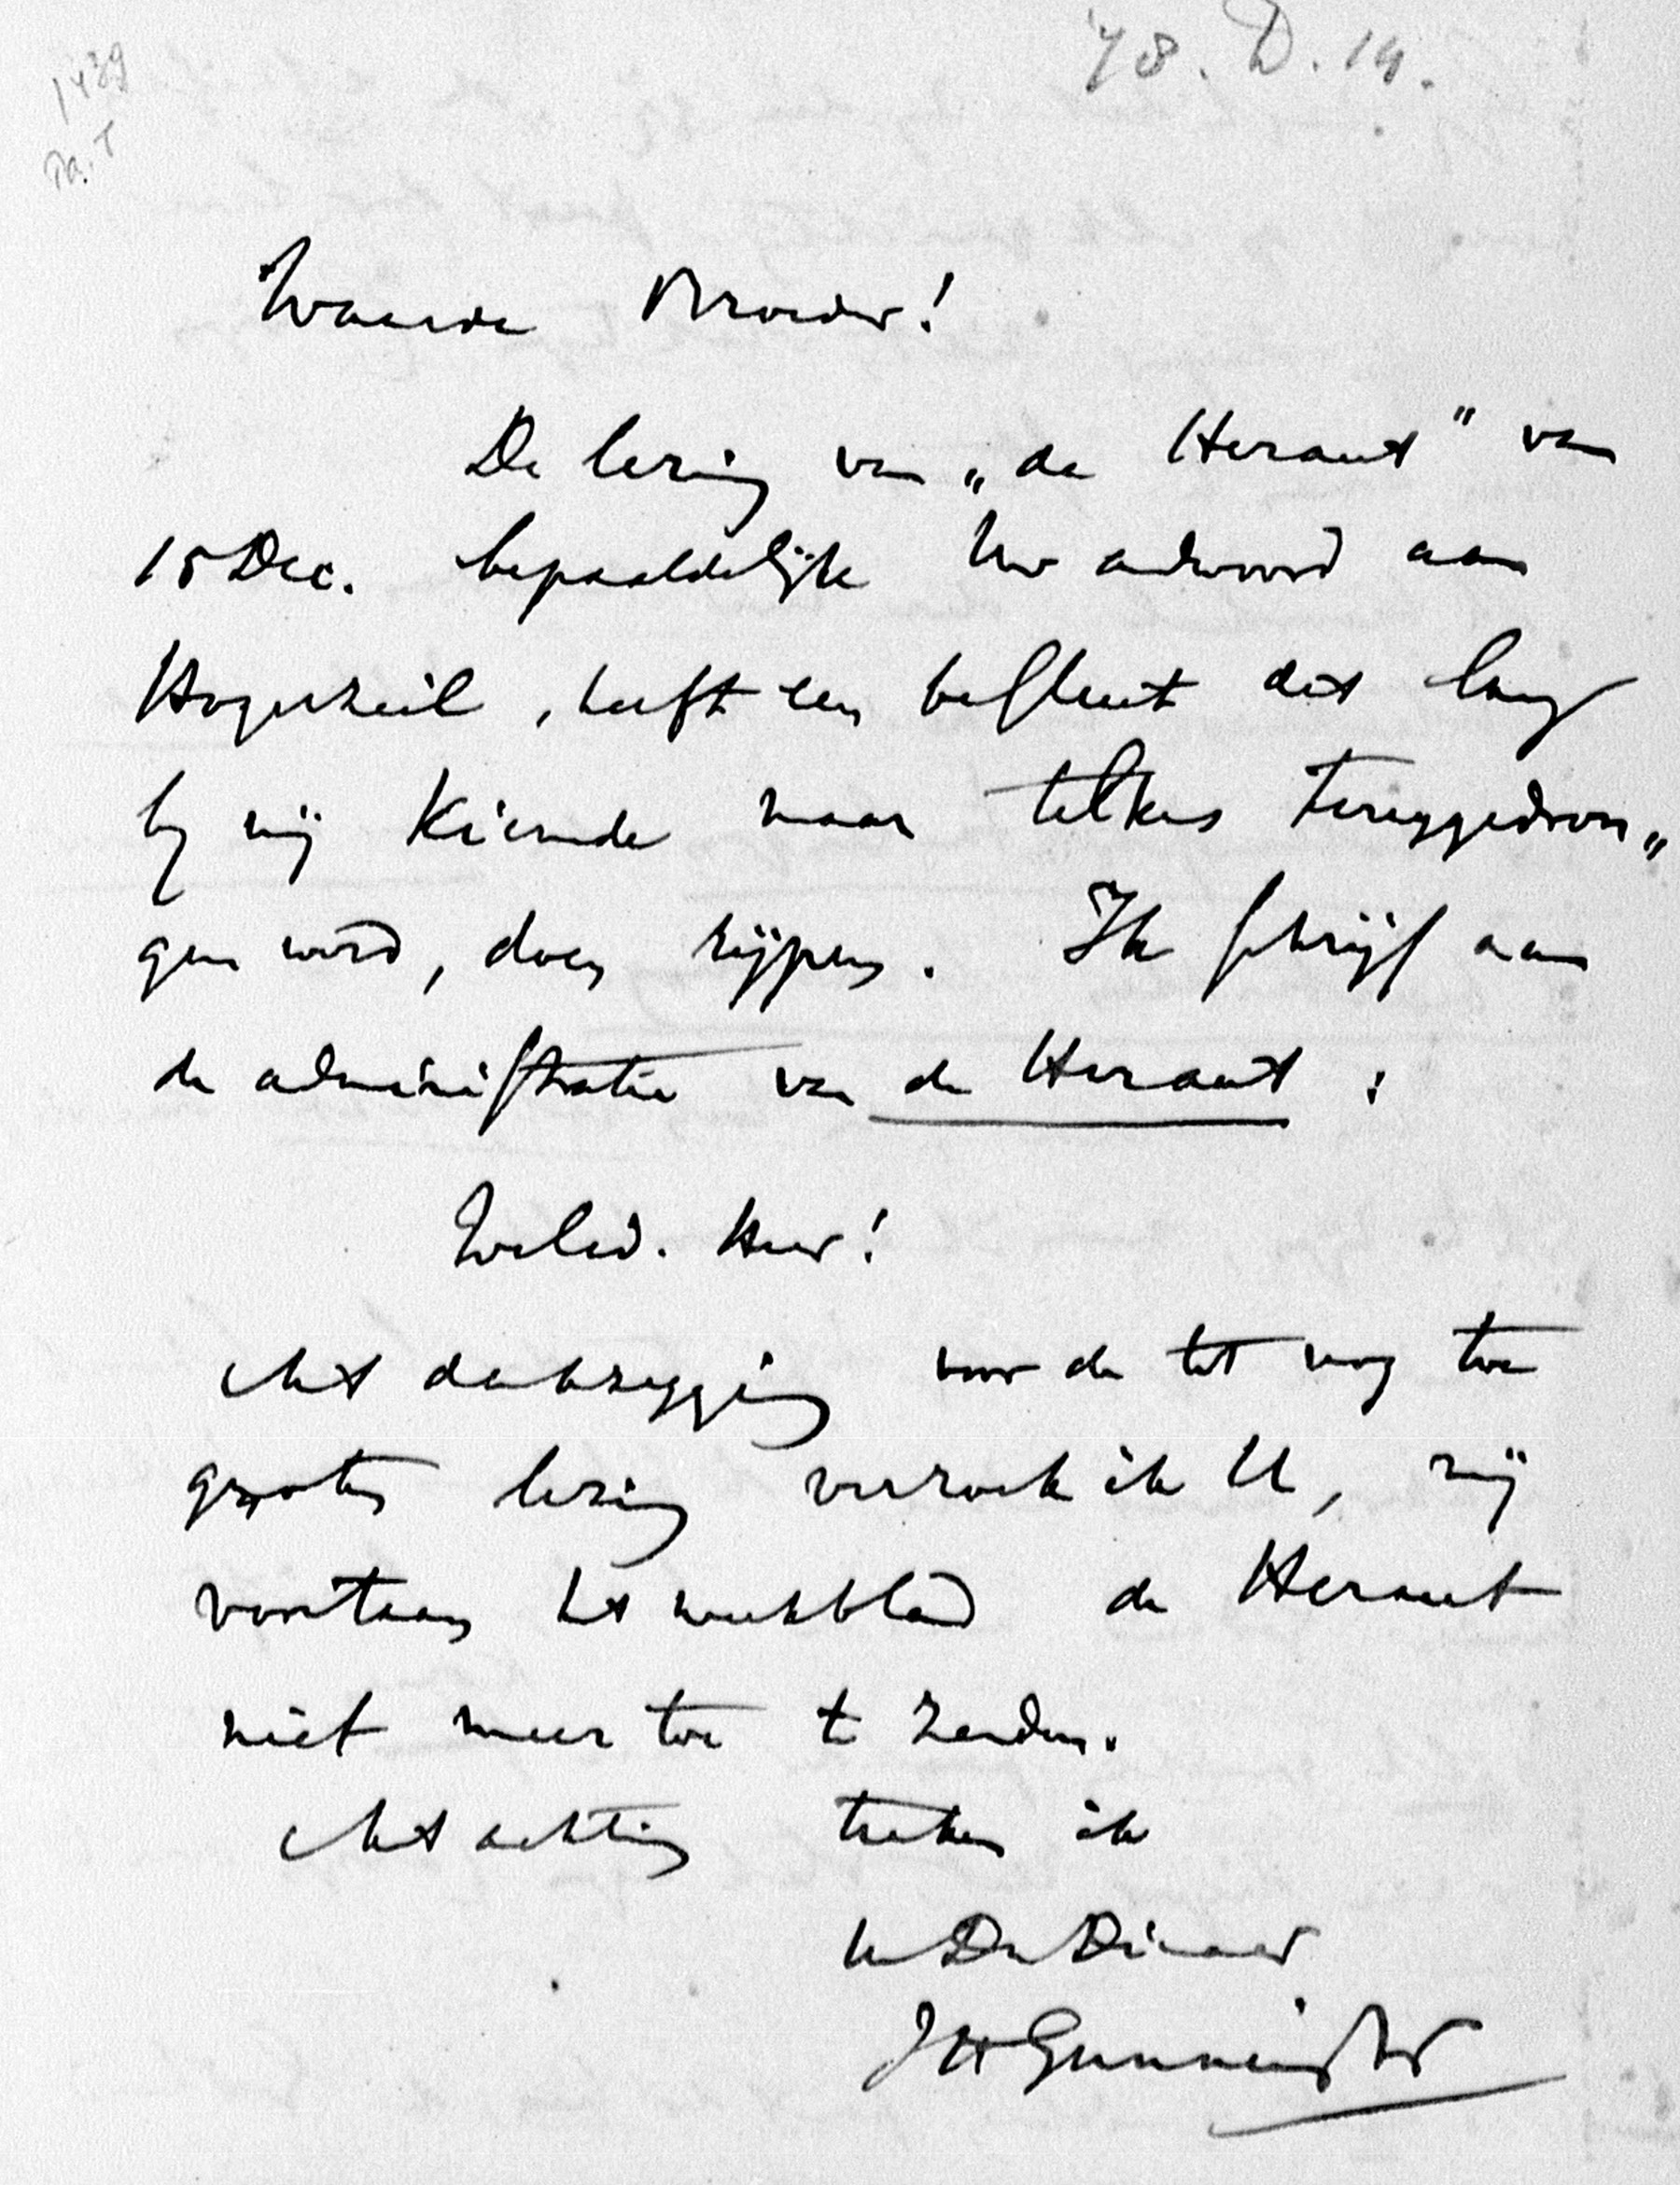 78. D. 14.
1439
Pa. T
Waarde Broeder!
De lezing van „de Heraut" van
15 Dec. bepaaldelijk Uw andwoord aan
Hogerzeil, heeft een besluit dat lang
by mij kiemde maar telkens teruggedron„
gen werd, doen rijpen. Ik schrijf aan
de administratie van de Heraut :
WelEd. Heer!
Met dankzegging voor de tot nog toe
genoten lezing verzoek ik U, mij
voortaan het weekblad de Heraut
niet meer toe te zenden.
Met achting teeken ik
Uw Dw Dienaar
JHGunning JHz